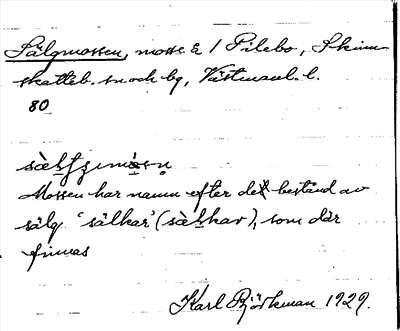 Sälgmossen, mosse E / Pilebo, Skinn-
skatteb. sn och bg, Västmanl. l.
80
Mossen har namn efter det bestånd av
sälg 'sälkar' (            ), som där
finnas
Karl Björkman 1929.